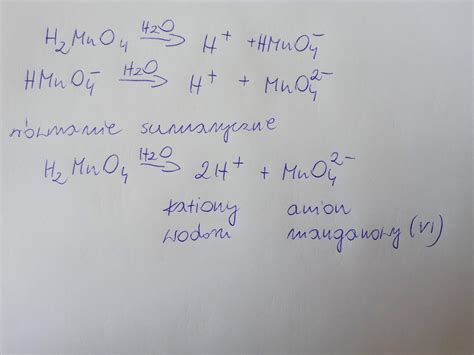 H₂MnO₄ —H₂O→ H⁺ + HMnO₄⁻
HMnO₄⁻ —H₂O→ H⁺ + MnO₄²⁻
równanie sumaryczne
H₂MnO₄ —H₂O→ 2H⁺ + MnO₄²⁻
kationy anion
wodoru manganowy (VI)